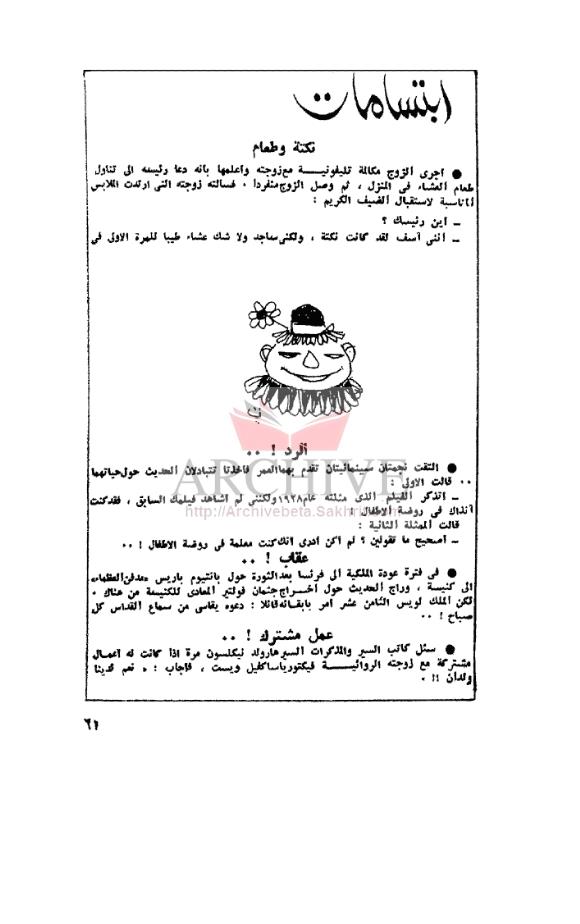 ابتسامات
نكتة وطعام
● أجرى الزوج مكالمة تليفونيـــة مع زوجته وأعلمها بأنه دعا رئيسه الى تناول
طعام العشاء فى المنزل ، ثم وصل الزوج منفردا . فسالته زوجته التى ارتدت الملابس
المناسبة لاستقبال الضيف الكريم :
ــ اين رئيسك ؟
ــ اننى آسف لقد كانت نكتة ، ولكنى ساجد ولا شك عشاء طيبا للمرة الاولى فى
الرد ! ..
● التقت نجمتان سينمائيتان تقدم بهما العمر فاخذتا تتبادلان الحديث حول حياتهما
.. قالت الاولى :
ــ اتذكر الفيلم الذى مثلته عام ١٩٢٨ ولكننى لم اشاهد فيلمك السابق ، فقد كنت
آنذاك فى روضة الاطفال !
قالت الممثلة الثانية :
ــ أصحيح ما تقولين ؟ لم اكن أدرى انك كنت معلمة فى روضة الاطفال ! ..
عقاب ! ..
● فى فترة عودة الملكية الى فرنسا بعد الثورة حول بانتيوم باريس «مدفن العظماء»
الى كنيسة ، وراج الحديث حول اخــراج جثمان فولتير المعادى للكنيسة من هناك .
لكن الملك لويس الثامن عشر أمر بابقائه قائلا : دعوه يقاسى من سماع القداس كل
صباح ! ..
عمل مشترك ! ..
● سئل كاتب السير والمذكرات السير هارولد نيكلسون مرة اذا كانت له اعمــال
مشتركة مع زوجته الروائيـــة فيكتوريا ساكفيل ويست ، فاجاب : « نعم لدينا
ولدان !! .
ARCHIVE
http://Archivebeta.Sakhrit.com
٦١